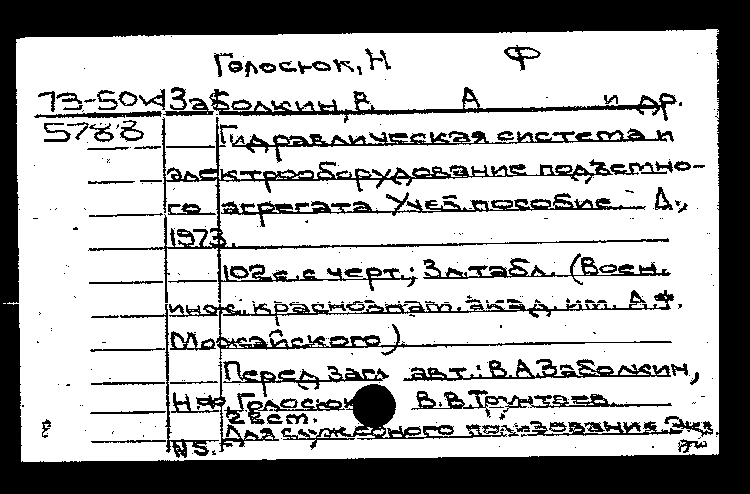 Голосюк, Н Ф
73-50к Заболкин, В. А и др.
5788 Гидравлическая система и
электрооборудование подъемно-
го агрегата. Учеб. пособие. Л.,
1973.
102 с. с черт.; 3 л. табл. (Воен.
инж. краснознам. акад. им. А.Ф.
Можайского).
Перед загл. авт.: В.А.Заболкин,
Н.Ф. Голосюк В.В.Трунтаев.
Для служебного пользования. Экз.
NS.